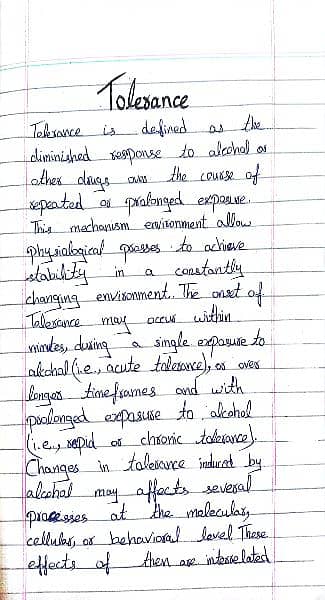 Tolerance
Tolerance is defined as the
diminished response to alcohol or
other drugs over the course of
repeated or prolonged exposure.
This mechanism environment allow
physiological prosses to achieve
stability in a constantly
changing environment. The onset of
Tolerance may occur within
minutes, during a single exposure to
alcohol (i.e., acute tolerance), or over
longer timeframes and with
prolonged exposure to alcohol
(i.e., repid or chronic tolerance).
Changes in tolerance induced by
alcohol may affects several
processes at the molecular,
cellular, or behavioral level These
effects of then are interrelated